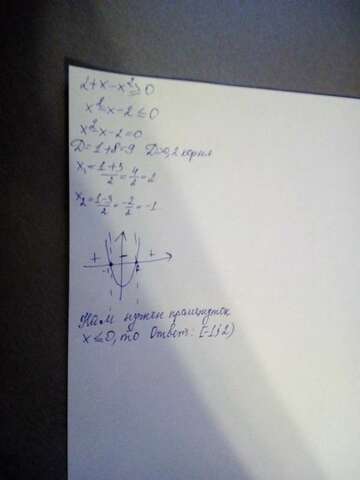 2+x-x²≥0
x²-x-2≤0
x²-x-2=0
D=1+8=9 D>0, 2 корня
x₁=1+3/2=4/2=2
x₂=1-3/2=-2/2=-1
+ - +
-1 2
Нам нужен промежуток
x≤0, то Ответ: [-1;2)